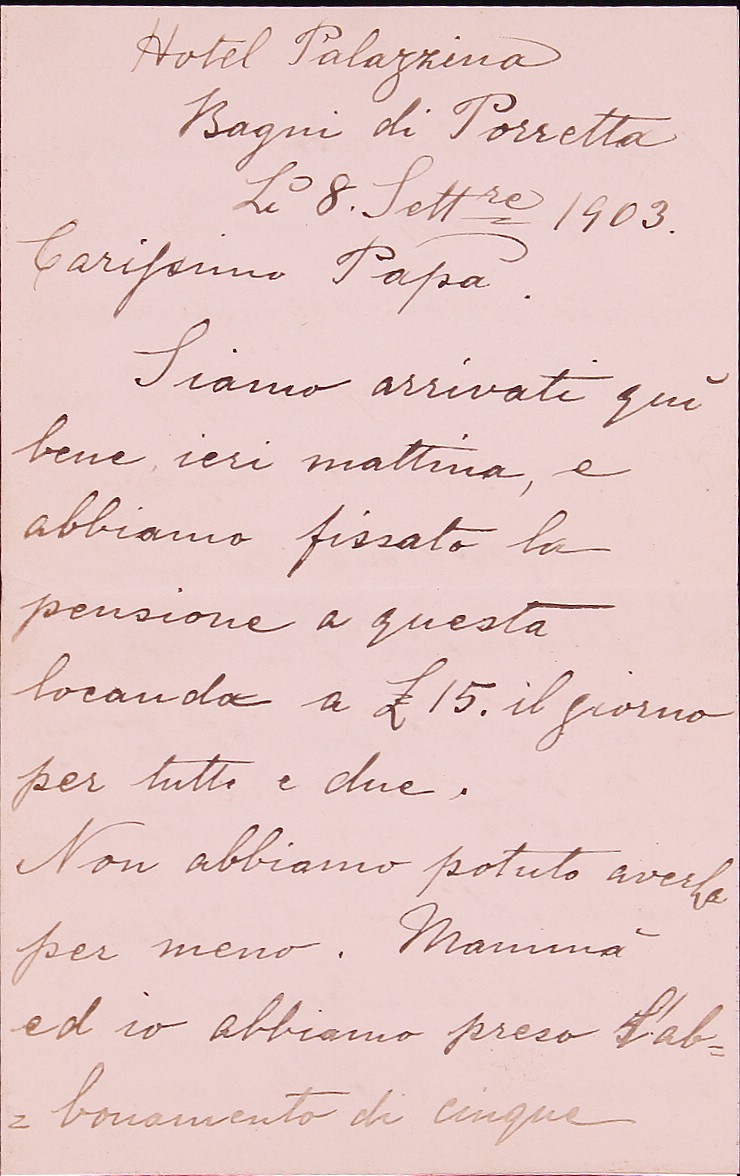 Hotel Palazzina
Bagni di Porretta
Li 8. Settre 1903.
Carissimo Papa.
Siamo arrivati quì
bene ieri mattina, e
abbiamo fissato la
pensione a questa
locanda a £ 15. il giorno
per tutti e due.
Non abbiamo potuto averla
per meno. Mammà
ed io abbiamo preso l'ab=
=bonamento di cinque